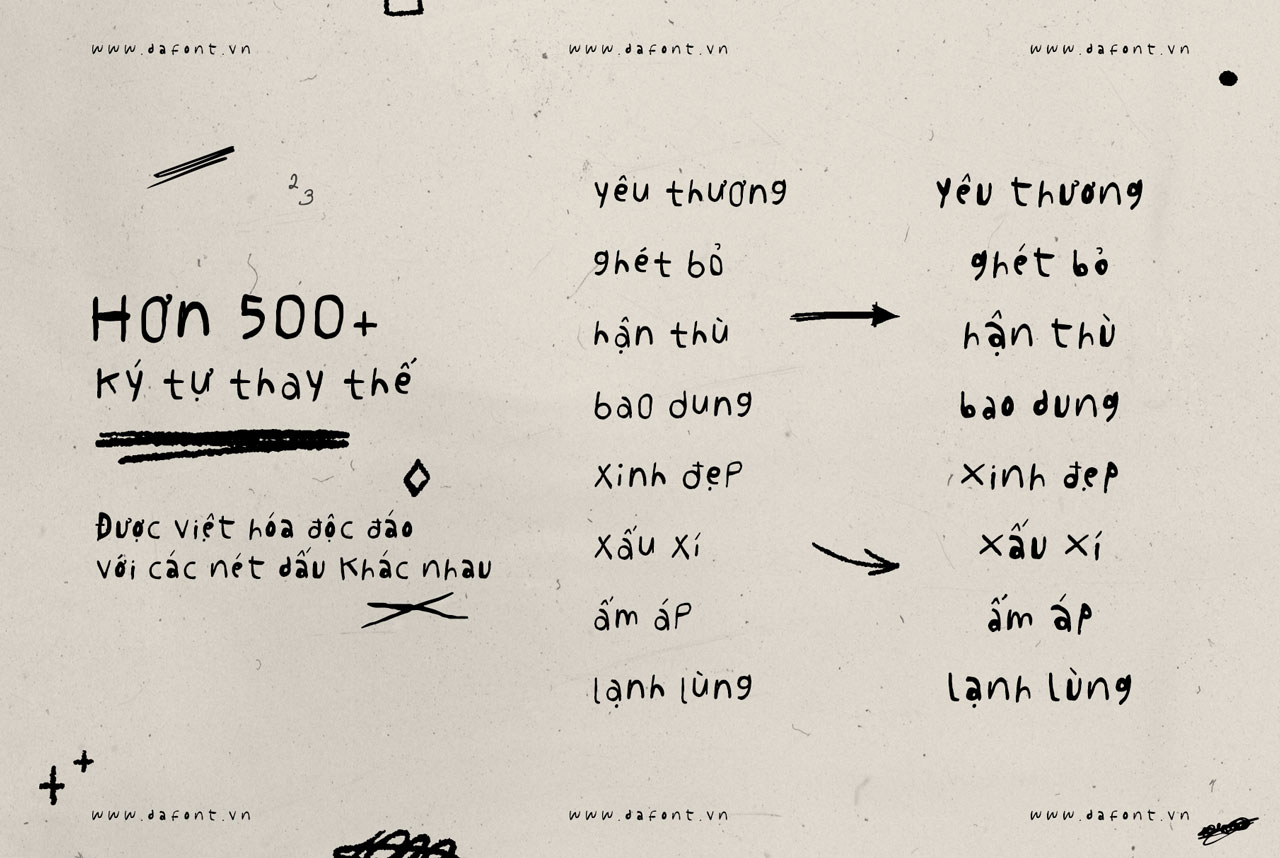 www.dafont.vn
www.dafont.vn
www.dafont.vn
2
3
Hơn 500+
Ký tự thay thế
Được Việt hóa độc đáo
với các nét dấu khác nhau
yêu thương
ghét bỏ
hận thù
bao dung
xinh đẹp
xấu xí
ấm áp
lạnh lùng
yêu thương
ghét bỏ
hận thù
bao dung
xinh đẹp
xấu xí
ấm áp
lạnh lùng
www.dafont.vn
www.dafont.vn
www.dafont.vn